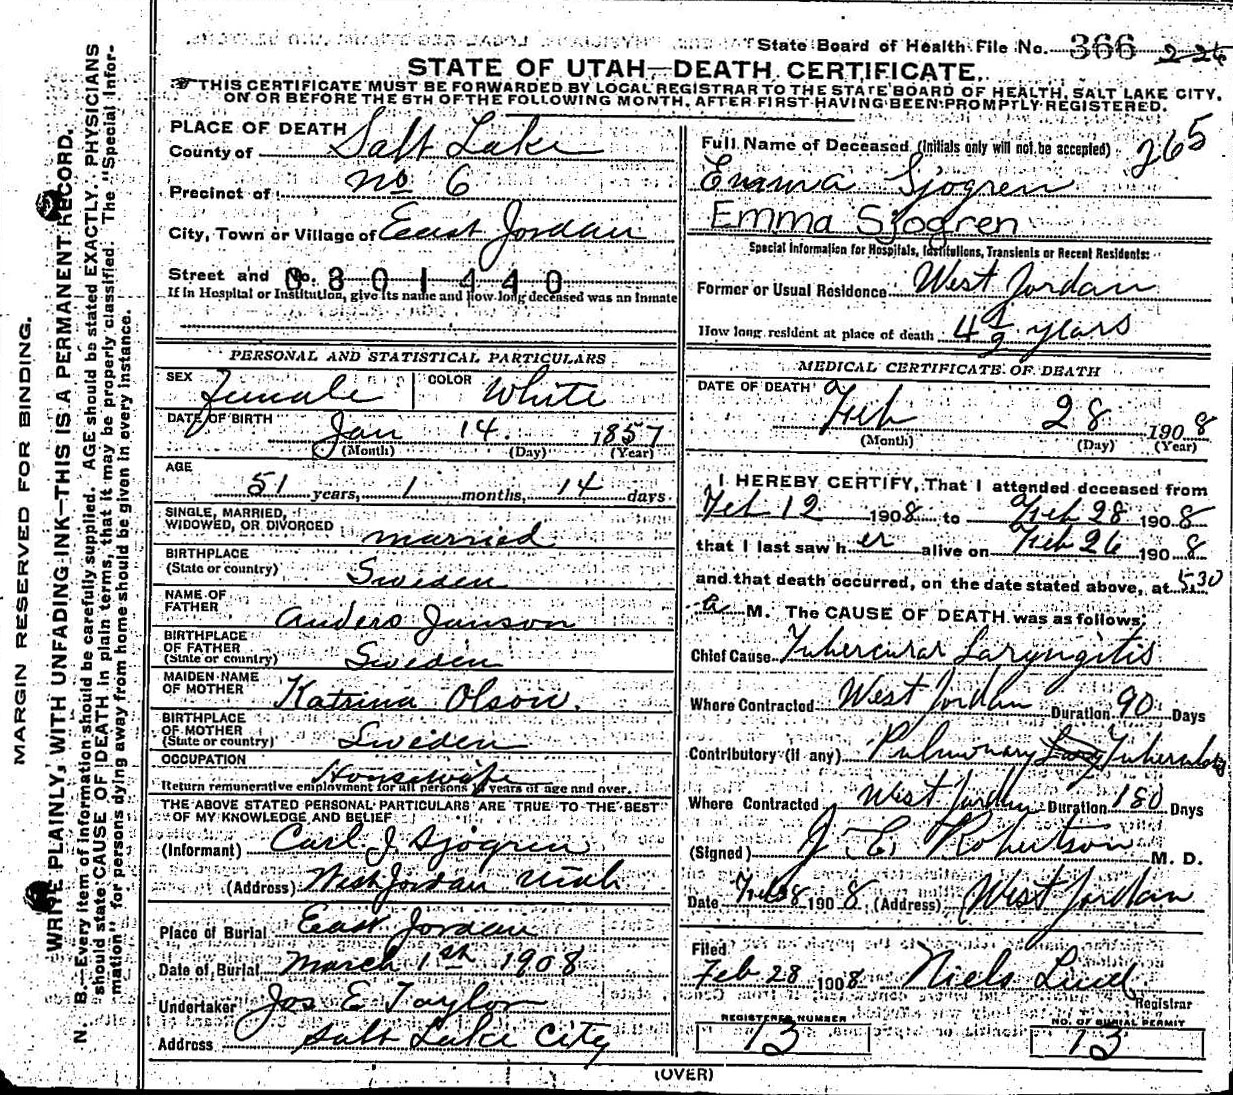 State Board of Health File No. 366 226
STATE OF UTAH—DEATH CERTIFICATE.
THIS CERTIFICATE MUST BE FORWARDED BY LOCAL REGISTRAR TO THE STATE BOARD OF HEALTH, SALT LAKE CITY,
ON OR BEFORE THE 5TH OF THE FOLLOWING MONTH, AFTER FIRST HAVING BEEN PROMPTLY REGISTERED.
MARGIN RESERVED FOR BINDING.
WRITE PLAINLY, WITH UNFADING INK—THIS IS A PERMANENT RECORD.
N. B.—Every item of information should be carefully supplied. AGE should be stated EXACTLY. PHYSICIANS
should state CAUSE OF DEATH in plain terms, that it may be properly classified. The "Special Infor-
mation" for persons dying away from home should be given in every instance.
PLACE OF DEATH
County of Salt Lake
Precinct of No 6
City, Town or Village of East Jordan
Street and No. 301440
If in Hospital or Institution, give its name and how long deceased was an inmate
PERSONAL AND STATISTICAL PARTICULARS
SEX Female COLOR White
DATE OF BIRTH Jan 14. 1857
(Month) (Day) (Year)
AGE
51 years, 1 months, 14 days
SINGLE, MARRIED,
WIDOWED, OR DIVORCED married
BIRTHPLACE
(State or country) Sweden
NAME OF
FATHER Anders Janson
BIRTHPLACE
OF FATHER
(State or country) Sweden
MAIDEN NAME
OF MOTHER Katrina Olson.
BIRTHPLACE
OF MOTHER
(State or country) Sweden
OCCUPATION Housewife
Return remunerative employment for all persons years of age and over.
THE ABOVE STATED PERSONAL PARTICULARS ARE TRUE TO THE BEST
OF MY KNOWLEDGE AND BELIEF
(Informant) Carl J Sjogren
(Address) West Jordan Utah
Place of Burial East Jordan
Date of Burial March 1st 1908
Undertaker Jos E Taylor
Address Salt Lake City
Full Name of Deceased (Initials only will not be accepted) 265
Emma Sjogren
Emma Sjogren
Special Information for Hospitals, Institutions, Transients or Recent Residents:
Former or Usual Residence West Jordan
How long resident at place of death 4 1/2 years
MEDICAL CERTIFICATE OF DEATH
DATE OF DEATH
Feb 28 1908
(Month) (Day) (Year)
I HEREBY CERTIFY, That I attended deceased from
Feb 12 1908 to Feb 28 1908
that I last saw her alive on Feb 26 1908
and that death occurred, on the date stated above, at 5.30
a M. The CAUSE OF DEATH was as follows:
Chief Cause Tubercular Laryngitis
Where Contracted West Jordan Duration 90 Days
Contributory (if any) Pulmonary Tuberculosis
Where Contracted West Jordan Duration 180 Days
(Signed) J E Robertson M. D.
Date Feb 28 1908 (Address) West Jordan
Filed
Feb 28 1908 Niels Lind
Registrar
REGISTERED NUMBER NO. OF BURIAL PERMIT
13 13
(OVER)